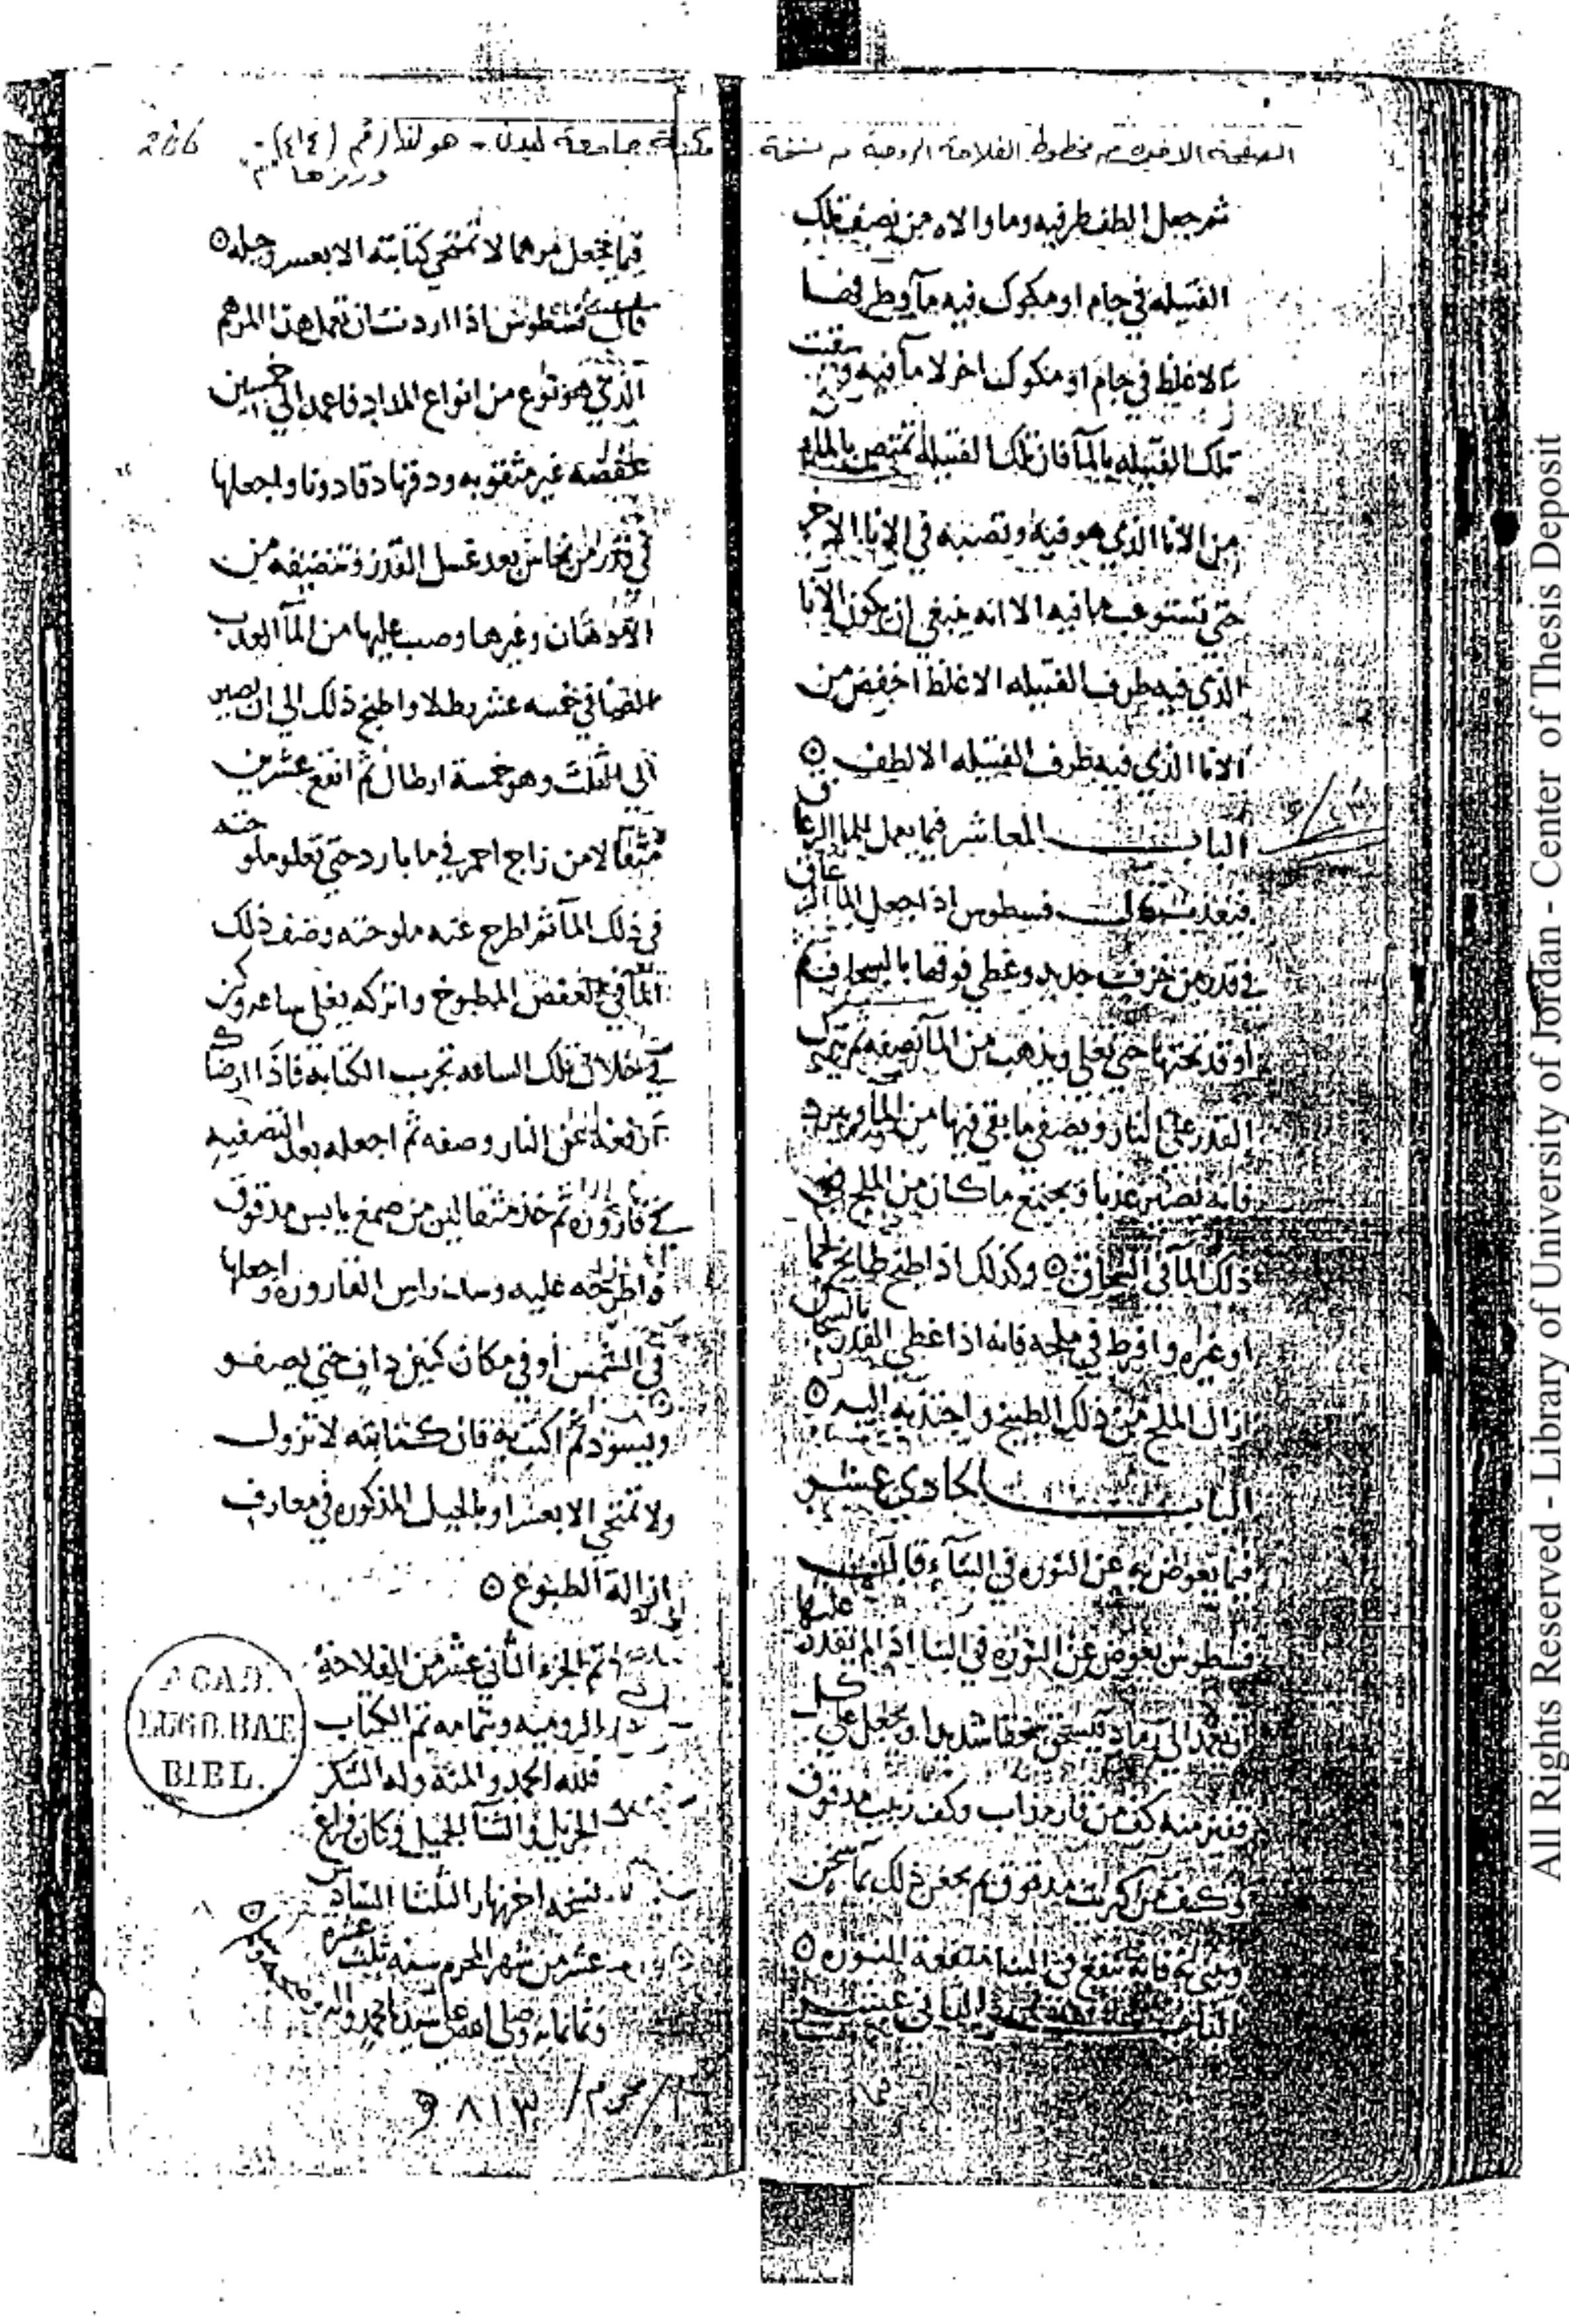 الصفحة الاخيرة من مخطوط الفلاحة الرومية من نسخة مكتبة جامعة ليدن - هولندا رقم (٤١٤) -
ورمزها "م"
206
ثم جعل الطف طرفيه وما والاه من نصف تلك
الفتيله في جام او مكوك فيه مآ وطرفها
الاغلظ في جام او مكوك اخر لا مآ فيه وسقيت
تلك الفتيله بالمآ فان تلك الفتيلة تمتص المآ
من الانا الذي هو فيه وتصبه في الانا الاخر
حتى تستوعب ما فيه الا انه ينبغي ان يكون الانا
الذي فيه طرف الفتيله الاغلظ اخفض من
الانا الذي فيه طرف الفتيله الالطف ٥
الباب العاشر فيما يعمل للما الزعاق
فيعذب قال فسطوس اذا جعل الما الزعاق
في قدر من خزف جديد وغطى فوقها بالسحاف ثم
اوقد تحتها حتى تغلي ويذهب من المآ نصفه ثم تترك
القدر على النار ويصفى ما بقي فيها من المآ ويبرد
فانه يصير عذبا ويجتمع ما كان من الملح في
ذلك المآ في السحاف ٥ وكذلك اذا طبخ طابخ لحما
او غيره وافرط في ملحه فانه اذا غطى القدر بالسحاف
ازال الملح من ذلك الطبيخ واجتذبه اليه ٥
الباب الحادي عشر
فيما يعوض به عن النوره في البنآء قال
فسطوس يعوض عن النوره في البنا اذا لم يقدر عليها
ان يعمد الى رماد فيسحق سحقا شديدا ويجعل على كل
قفيز منه كف من قار مذاب وكف زبيب مدقوق
وكف من كبريت مدقوق ثم يعجن ذلك بمآ سخن
ويبنى به فانه ينفع في البنا منفعة النوره ٥
الباب الثاني عشر
فيما يجعل مرهما لا تمتحي كتابته الا بعسر وحيله ٥
قال فسطوس اذا اردت ان تعمل هذا المرهم
الذي هو نوع من انواع المداد فاعمد الى خمسين
عفصه غير مثقوبه ودقها دقا دونا واجعلها
في قدر من نحاس بعد غسل القدر وتنضيفه من
الادهان وغيرها وصب عليها من المآ العذب
الصافي خمسه عشر رطلا واطبخ ذلك الى ان يصير
الى الثلث وهو خمسة ارطال ثم انقع عشرين
مثقالا من زاج احمر في ما بارد حتى تعلو ملوحته
في ذلك المآ ثم اطرح عنه ملوحته وضف ذلك
المآ في العفص المطبوخ واتركه يغلي ساعه وكن
في خلال تلك الساعه تجرب الكتابه فاذا ارضاك
ارفعه عن النار وصفه ثم اجعله بعد التصفيه
في قاروره ثم خذ مثقالين من صمغ يابس مدقوق
واطرحه عليه وسد راس القاروره واجعلها
في الشمس او في مكان كنين داف حتى يصفو
ويسود ثم اكتب به فان كتابته لا تزول
ولا تمتحي الا بعسر او بالحيل المذكوره في معارف
ازالة الطبوع ٥
تم الجزء الثاني عشر من الفلاحة
الرومية وبتمامه تم الكتاب
فلله الحمد والمنة وله الشكر
الجزيل والثنآ الجميل وكان فراغ
نسخه اخر نهار الثلثا السادس
عشر من شهر المحرم سنه ثلث عشره
وثمانمايه وصلى الله على سيدنا محمد واله
وصحبه وسلم
محرم / ٨١٣ هـ
ACAD.
LUGD. BAT.
BIBL.
All Rights Reserved - Library of University of Jordan - Center of Thesis Deposit